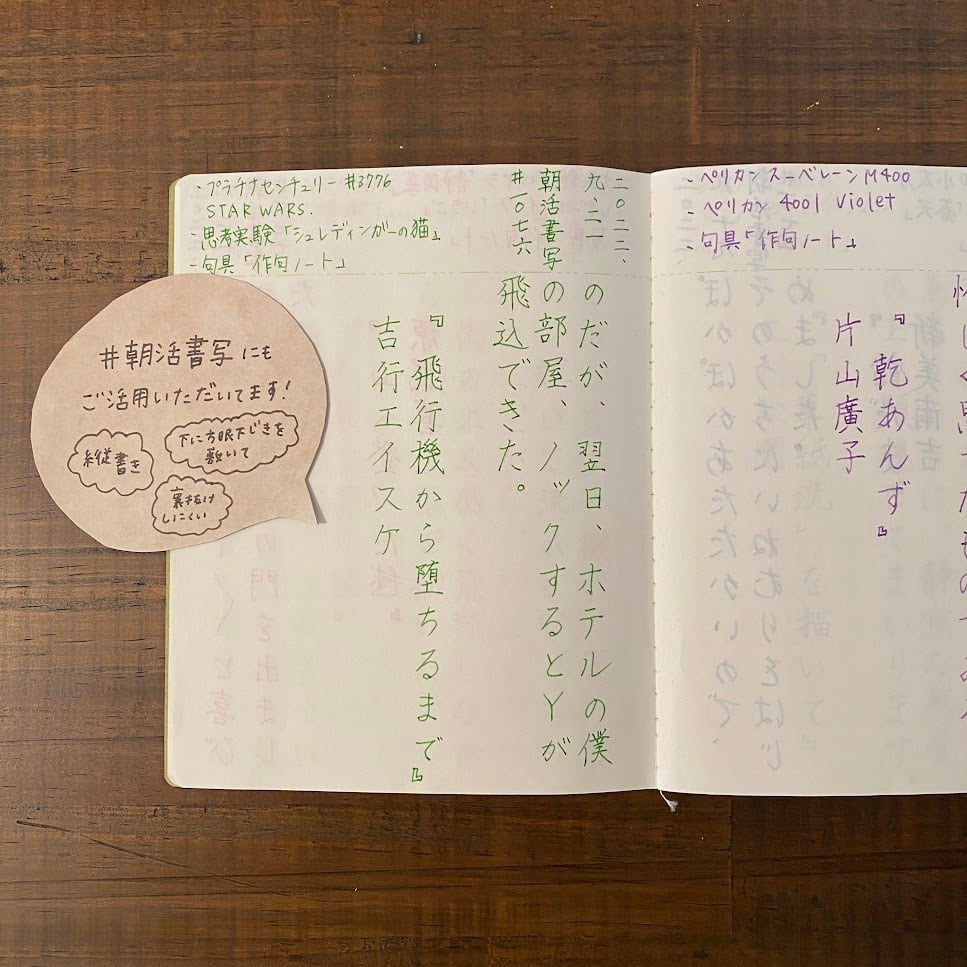 #朝活書写にも
ご活用いただいてます!
縦書き
下に方眼下じきを
敷いて
裏抜け
しにくい
・プラチナセンチュリー #3776
STAR WARS.
・思考実験「シュレディンガーの猫」
・句具「作句ノート」
二〇二二、
九、二一
朝活書写
#一〇七六
のだが、翌日、ホテルの僕
の部屋、ノックするとYが
飛込できた。
『飛行機から堕ちるまで』
吉行エイスケ
・ペリカン スーベレーン M400
・ペリカン 4001 Violet
・句具「作句ノート」
『乾あんず』
片山廣子